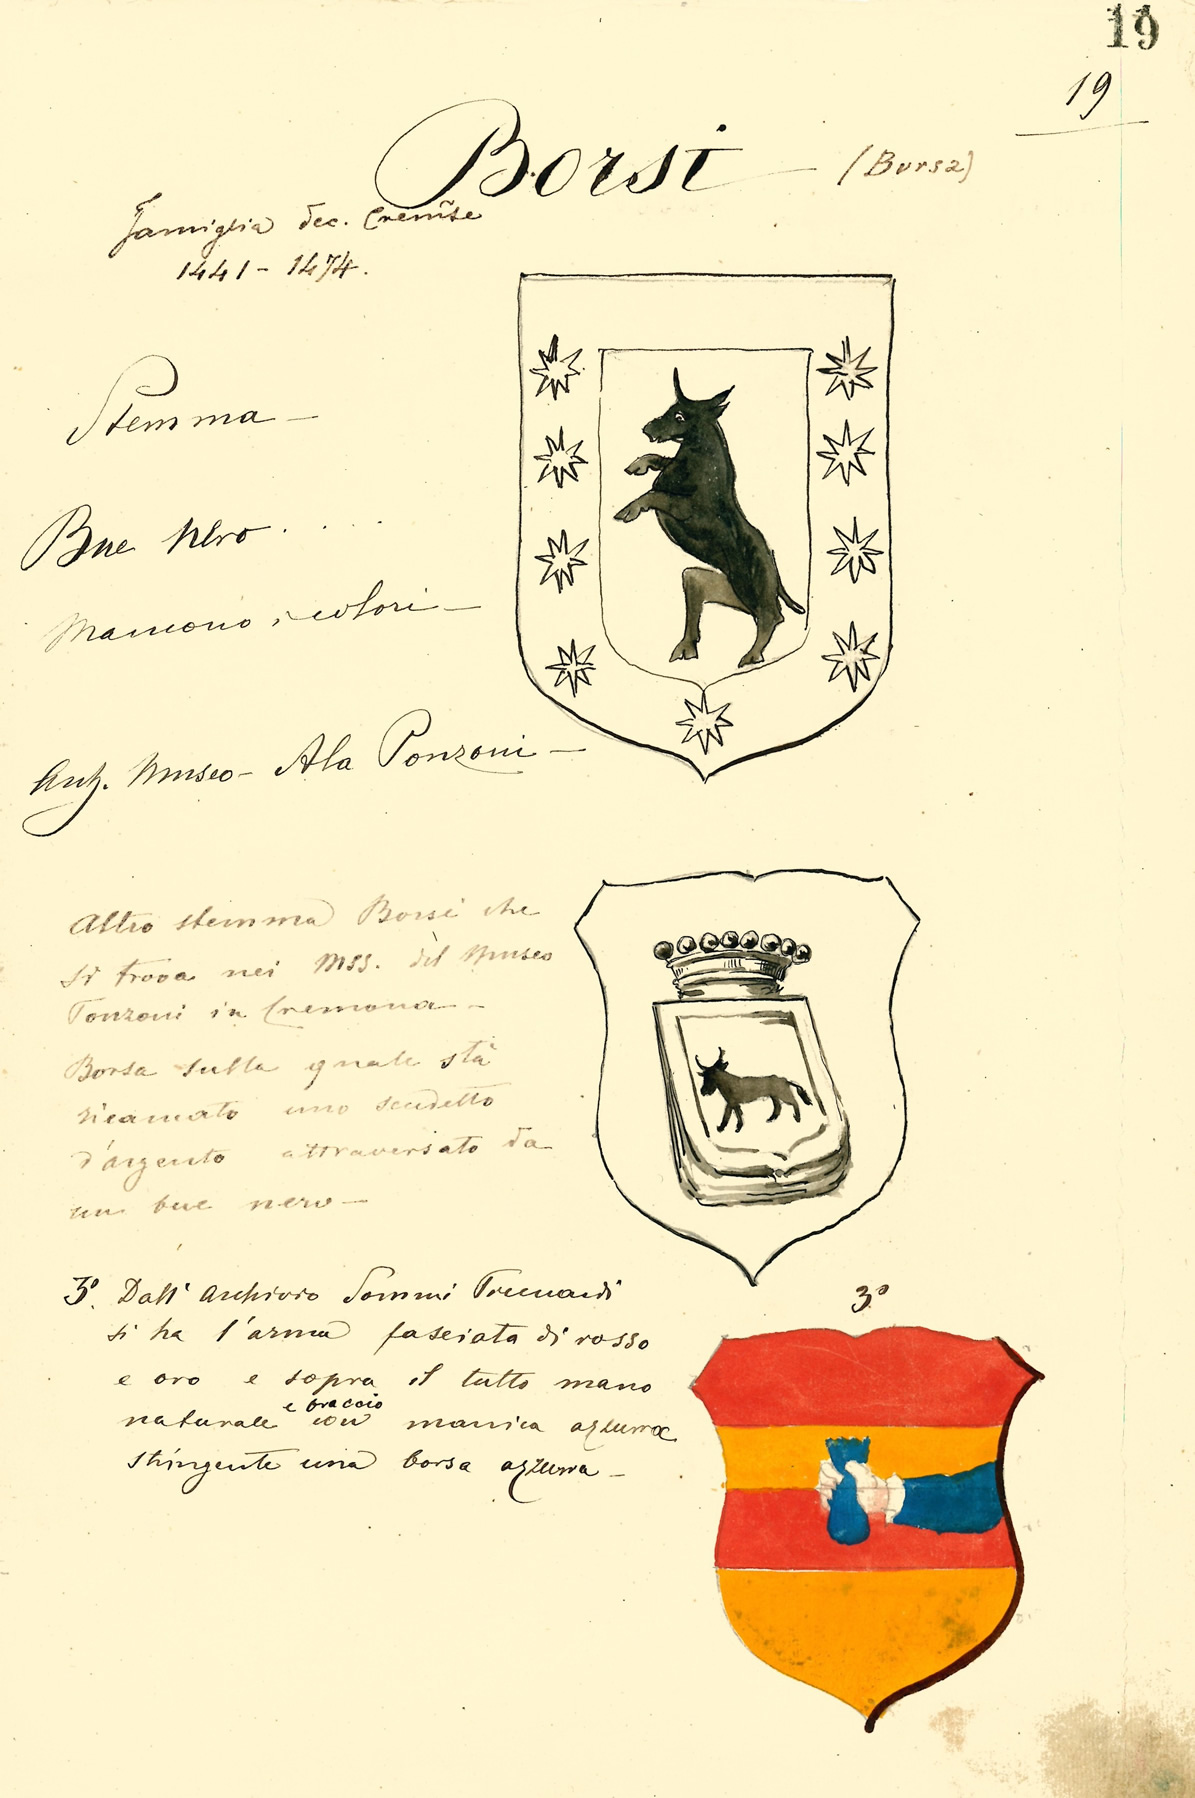 19
19
Borsi (Borsa)
Famiglia dec. Cremse
1441 - 1474.
Stemma -
Bue Nero . . . .
Mancono i colori -
Museo - Ala Ponzoni -
Altro stemma Borsi che
si trova nei Mss. del Museo
Ponzoni in Cremona -
Borsa sulla quale stà
ricamato uno scudetto
d'argento attraversato da
un bue nero -
3º. Dall' Archivio Sommi Picenardi
si ha l'arma fasciata di rosso
e oro e sopra il tutto mano
naturale e braccio con manica azzurra
stringente una borsa azzurra -
3º